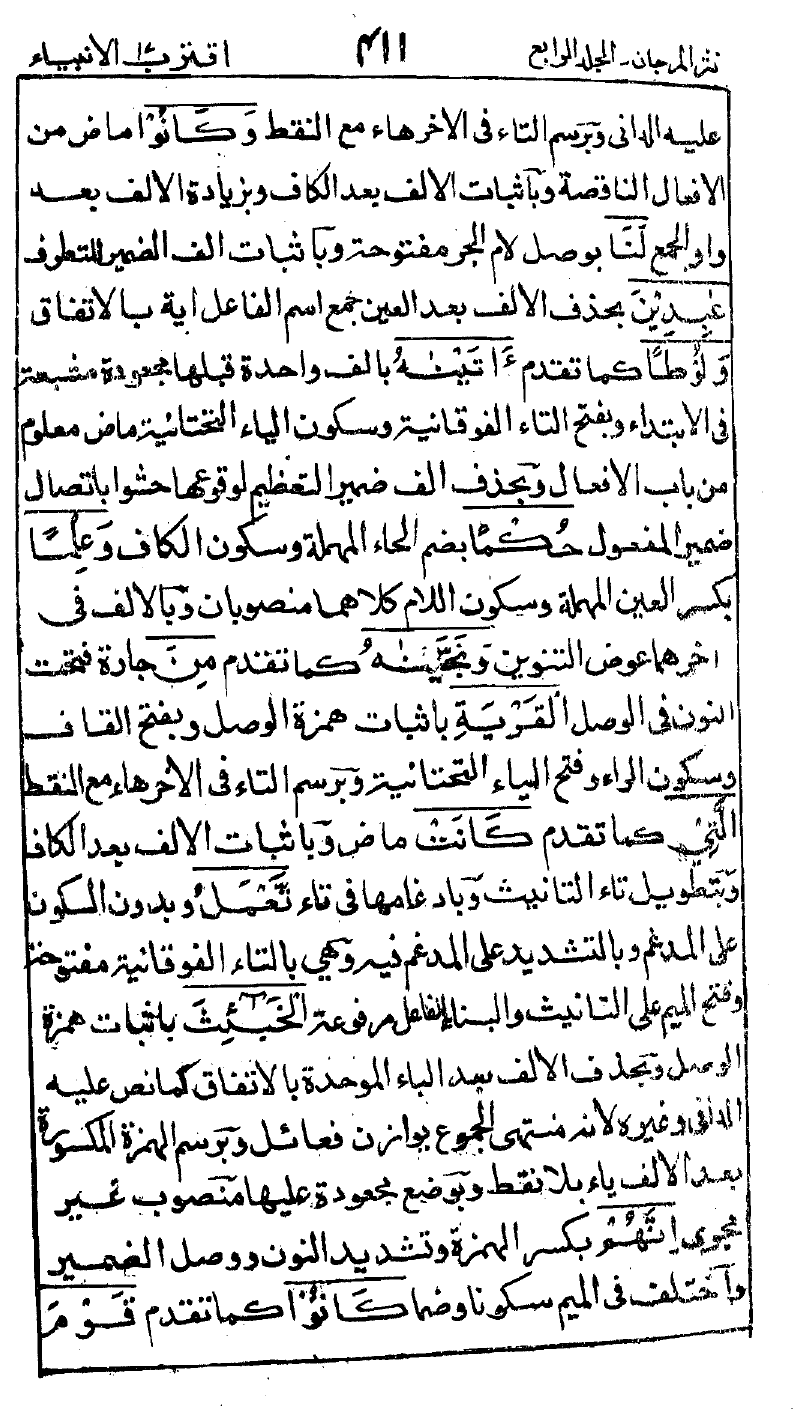 نثر المرجان - المجلد الرابع ٤١١ اقترب ١٧ الانبياء
عليه الدانى وَبرسم التاء فى الاخر هاء مع النقط وَكَانُوْا ماض من
الافعال الناقصة وبآثبات الالف بعد الكاف وبزيادة الالف بعد
واو الجمع لَنَا بوصل لام الجر مفتوحة وبآثبات الف الضمير للتطرف
عٰبِدِيْنَ بحذف الالف بعد العين جمع اسم الفاعل اية بالاتفاق
وَلُوْطًا كما تقدم ءَاتَيْنٰهُ بالف واحدة قبلها مجعودة مشبعة
فى الابتداء وبفتح التاء الفوقانية وسكون الياء التحتانية ماض معلوم
من باب الافعال وبحذف الف ضمير التعظيم لوقوعها حشوا باتصال
ضمير المفعول حُكْمًا بضم الحاء المهملة وسكون الكاف وَعِلْمًا
بكسر العين المهملة وسكون اللام كلاهما منصوبان وَبالالف فى
اخرهما عوض التنوين وَنَجَّيْنٰهُ كما تقدم مِنَ جارة فتحت
النون فى الوصل الْقَرْيَةِ باثبات همزة الوصل وبفتح القاف
وسكون الراء وفتح الياء التحتانية وَبرسم التاء فى الاخر هاء مع النقط
الَّتِيْ كما تقدم كَانَتْ ماض وَباثبات الالف بعد الكاف
وَبتطويل تاء التانيث وَبادغامها فى تاء تَّعْمَلُ وبدون السكون
على المدغم وبالتشديد على المدغم فيه وَهي بالتاء الفوقانية مفتوحة
وفتح الميم على التانيث والبناء للفاعل مرفوعة الْخَبٰٓئِثَ باثبات همزة
الوصل وبحذف الالف بعد الباء الموحدة بالاتفاق كما نص عليه
الدانى وغيره لانه منتهى الجموع يوازن فعائل وَبرسم الهمزة المكسورة
بعد الالف ياء بلا نقط وبوضع مجعودة عليها منصوب غير
مجرى اِنَّهُمْ بكسر الهمزة وتشديد النون ووصل الضمير
واختلف فى الميم سكونا وضما كَانُوْا كما تقدم قَوْمَ